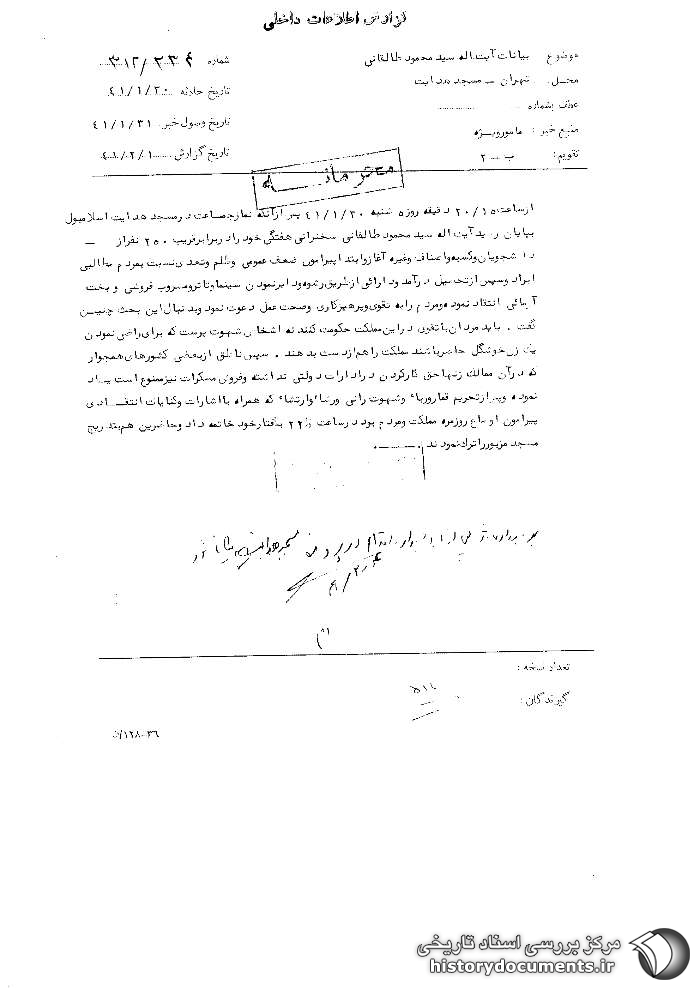 گزارش اطلاعات داخلی
موضوع : بیانات آیت اله سید محمود طالقانی
محل : تهران – مسجد هدایت
عطف بشماره
منبع خبر : مامور ویژه
تقویم : ب – ۲
شماره ۳۱۲/۲۳۴
تاریخ حادثه ۴۱/۱/۳۰
تاریخ وصول خبر ۴۱/۱/۳۱
تاریخ گزارش ۴۱/۲/۱
محرمانه
از ساعت ۲۰/۱۵ دقیقه روز ۵ شنبه ۴۱/۱/۳۰ پس از آنکه نماز جماعت در مسجد هدایت اسلامبول
بپایان رسید آیت اله سید محمود طالقانی سخنرانی هفتگی خود را در برابر قریب ۲۵۰ نفر از
دانشجویان و کسبه و اصناف و غیره آغاز و ابتدا پیرامون ضعف عمومی و ظلم و تعدی نسبت بمردم مطالبی
ایراد و سپس از تحصیل درآمد و دارائی از طریق رشوه و دایر نمودن سینما و تاتر و مشروب فروشی و بخت
آزمائی انتقاد نموده و مردم را به تقوی و پرهیزکاری و صحت عمل دعوت نمود و بدنبال این بحث چنین
گفت . باید مردان با تقوی در این مملکت حکومت کنند نه اشخاص شهوت پرست که برای راضی نمودن
یک زن خوشگل حاضر باشند مملکت را هم از دست بدهند . سپس ناطق از بعضی کشورهای همجوار
که در آن ممالک زنها حق کار کردن در ادارات دولتی نداشته و فروش مسکرات نیز ممنوع است یاد
نموده و پیرامون تحریم قمار و ربا و شهوت رانی و زنا و ارتشاء که همراه با اشارات و کنایات انتقادی
پیرامون اوضاع روزمره مملکت و مردم بود در ساعت ۲۲ بگفتار خود خاتمه داد و حاضرین هم بتدریج
مسجد مزبور را ترک نمودند .
تعداد نسخه :
گیرندگان :
۵۱۱
۳۶-۱۲۸
مرکز بررسی اسناد تاریخی
historydocuments.ir